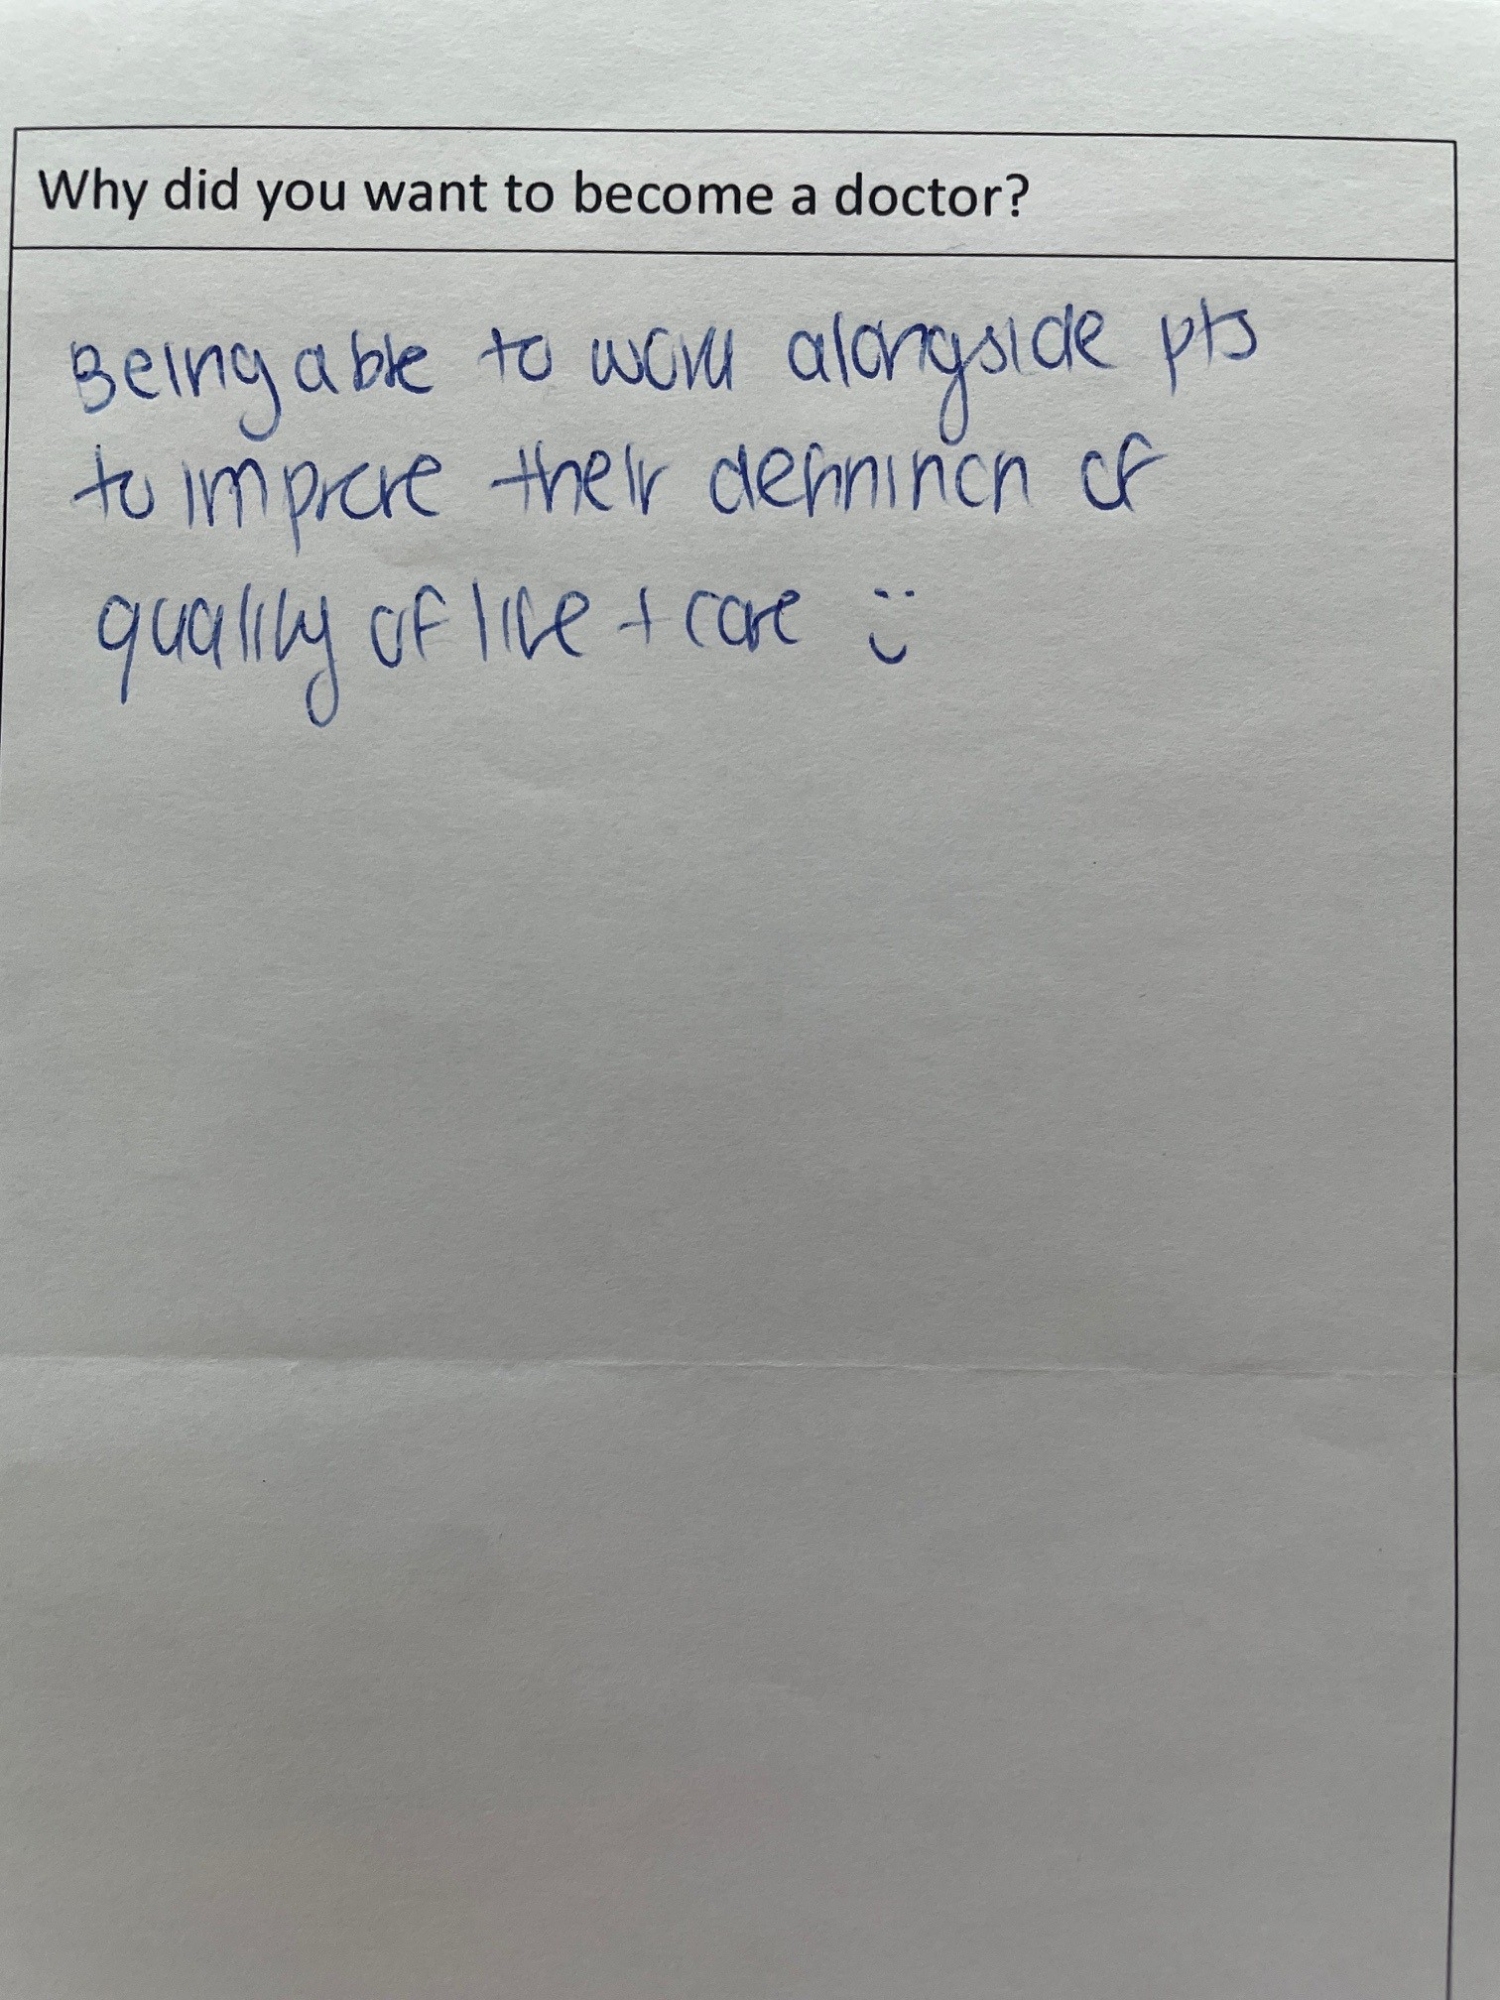 Why did you want to become a doctor?
Being able to work alongside pts
to improve their definition of
quality of life + care :)